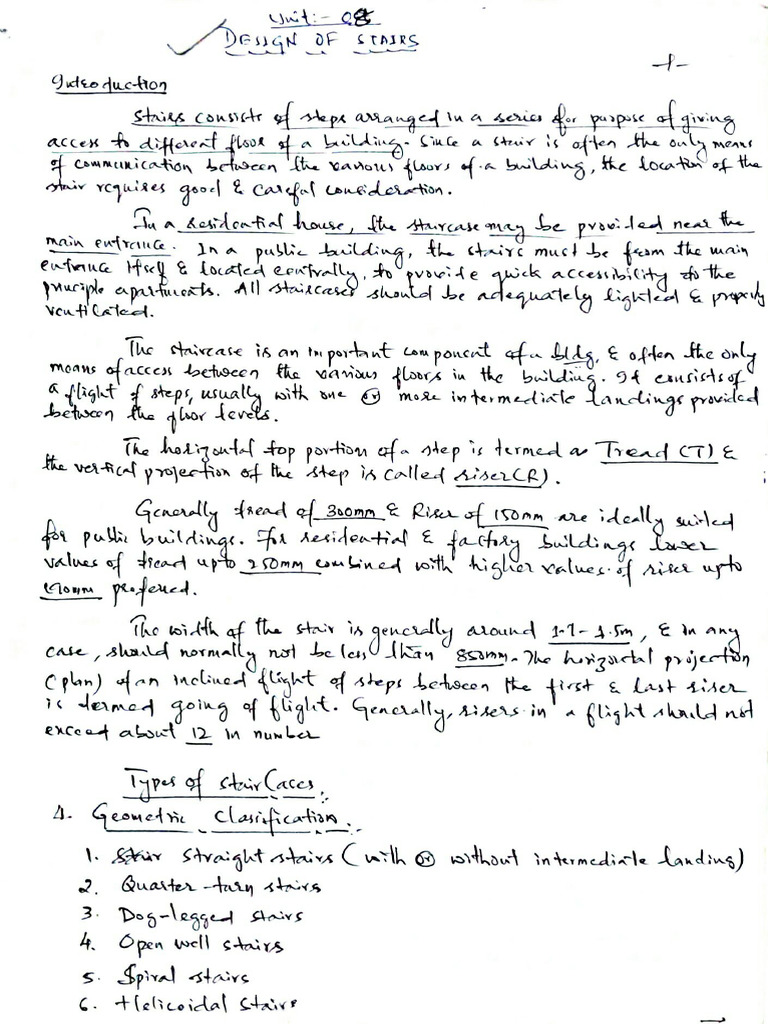 Unit:- 08
DESIGN OF STAIRS
-1-
Introduction
Stairs consists of steps arranged in a series for purpose of giving
access to different floor of a building. Since a stair is often the only means
of communication between the various floors of a building, the location of the
stair requires good & careful consideration.
In a residential house, the staircase may be provided near the
main entrance. In a public building, the stairs must be from the main
entrance itself & located centrally, to provide quick accessibility to the
principle apartments. All staircases should be adequately lighted & properly
ventilated.
The staircase is an important component of a bldg, & often the only
means of access between the various floors in the building. It consists of
a flight of steps, usually with one or more intermediate landings provided
between the floor levels.
The horizontal top portion of a step is termed as Tread (T) &
the vertical projection of the step is called riser (R).
Generally tread of 300mm & Riser of 150mm are ideally suited
for public buildings. For residential & factory buildings lower
values of tread upto 250mm combined with higher values of riser upto
190mm preferred.
The width of the stair is generally around 1.1 - 1.5m, & in any
case, should normally not be less than 850mm. The horizontal projection
(plan) of an inclined flight of steps between the first & last riser
is termed going of flight. Generally, risers in a flight should not
exceed about 12 in number
Types of stair Cases:
1. Geometric Classification:
1. straight stairs (with or without intermediate landing)
2. Quarter-turn stairs
3. Dog-legged stairs
4. Open well stairs
5. Spiral stairs
6. Helicoidal stairs